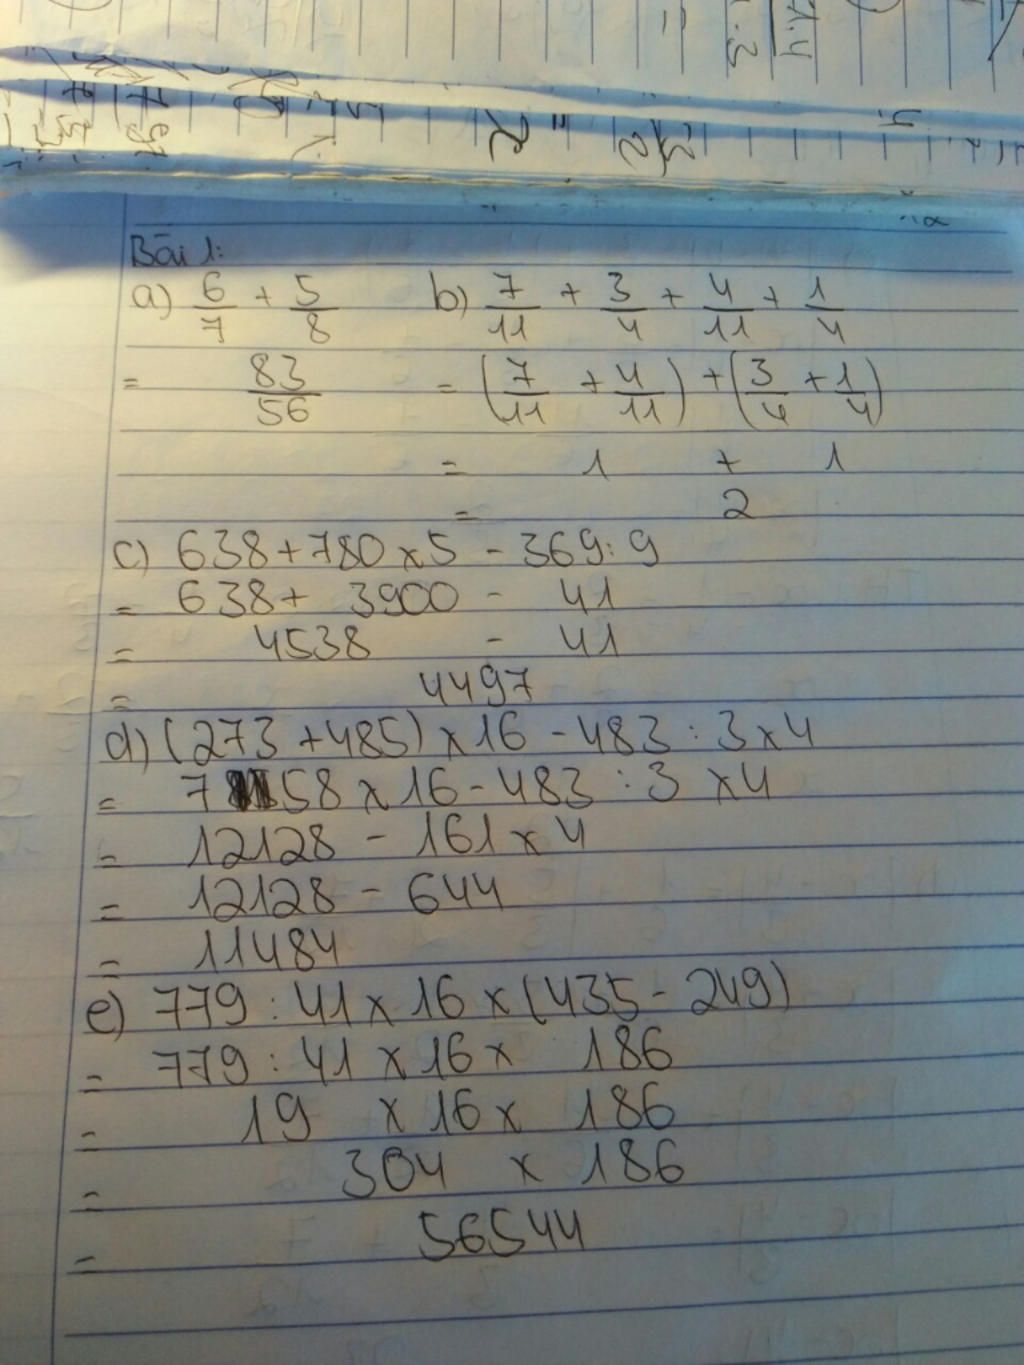 Bài 1:
a) 6/7 + 5/8 b) 7/11 + 3/4 + 4/11 + 1/4
= 83/56 = (7/11 + 4/11) + (3/4 + 1/4)
= 1 + 1
= 2
c) 638 + 780 x 5 - 369 : 9
= 638 + 3900 - 41
= 4538 - 41
= 4497
d) (273 + 485) x 16 - 483 : 3 x 4
= 758 x 16 - 483 : 3 x 4
= 12128 - 161 x 4
= 12128 - 644
= 11484
e) 779 : 41 x 16 x (435 - 249)
= 779 : 41 x 16 x 186
= 19 x 16 x 186
= 304 x 186
= 56544